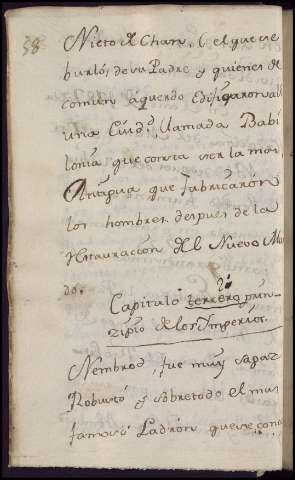 58
Nieto de Cham, (el que se
burló, de su Padre y quienes de
comun aquerdo edifigaron alli
una Ciud.ᵈ llamada Babi
lonia que consta ser la mas
Antigua que fabricaron
los hombres despues de la
restauracion del Nuevo Mun
do.
Capitulo terrero prin-
zipio de los Imperios.
Nembrod, fue muy sagaz
Robusto y sobretodo el mas
famoso Ladron que se cono